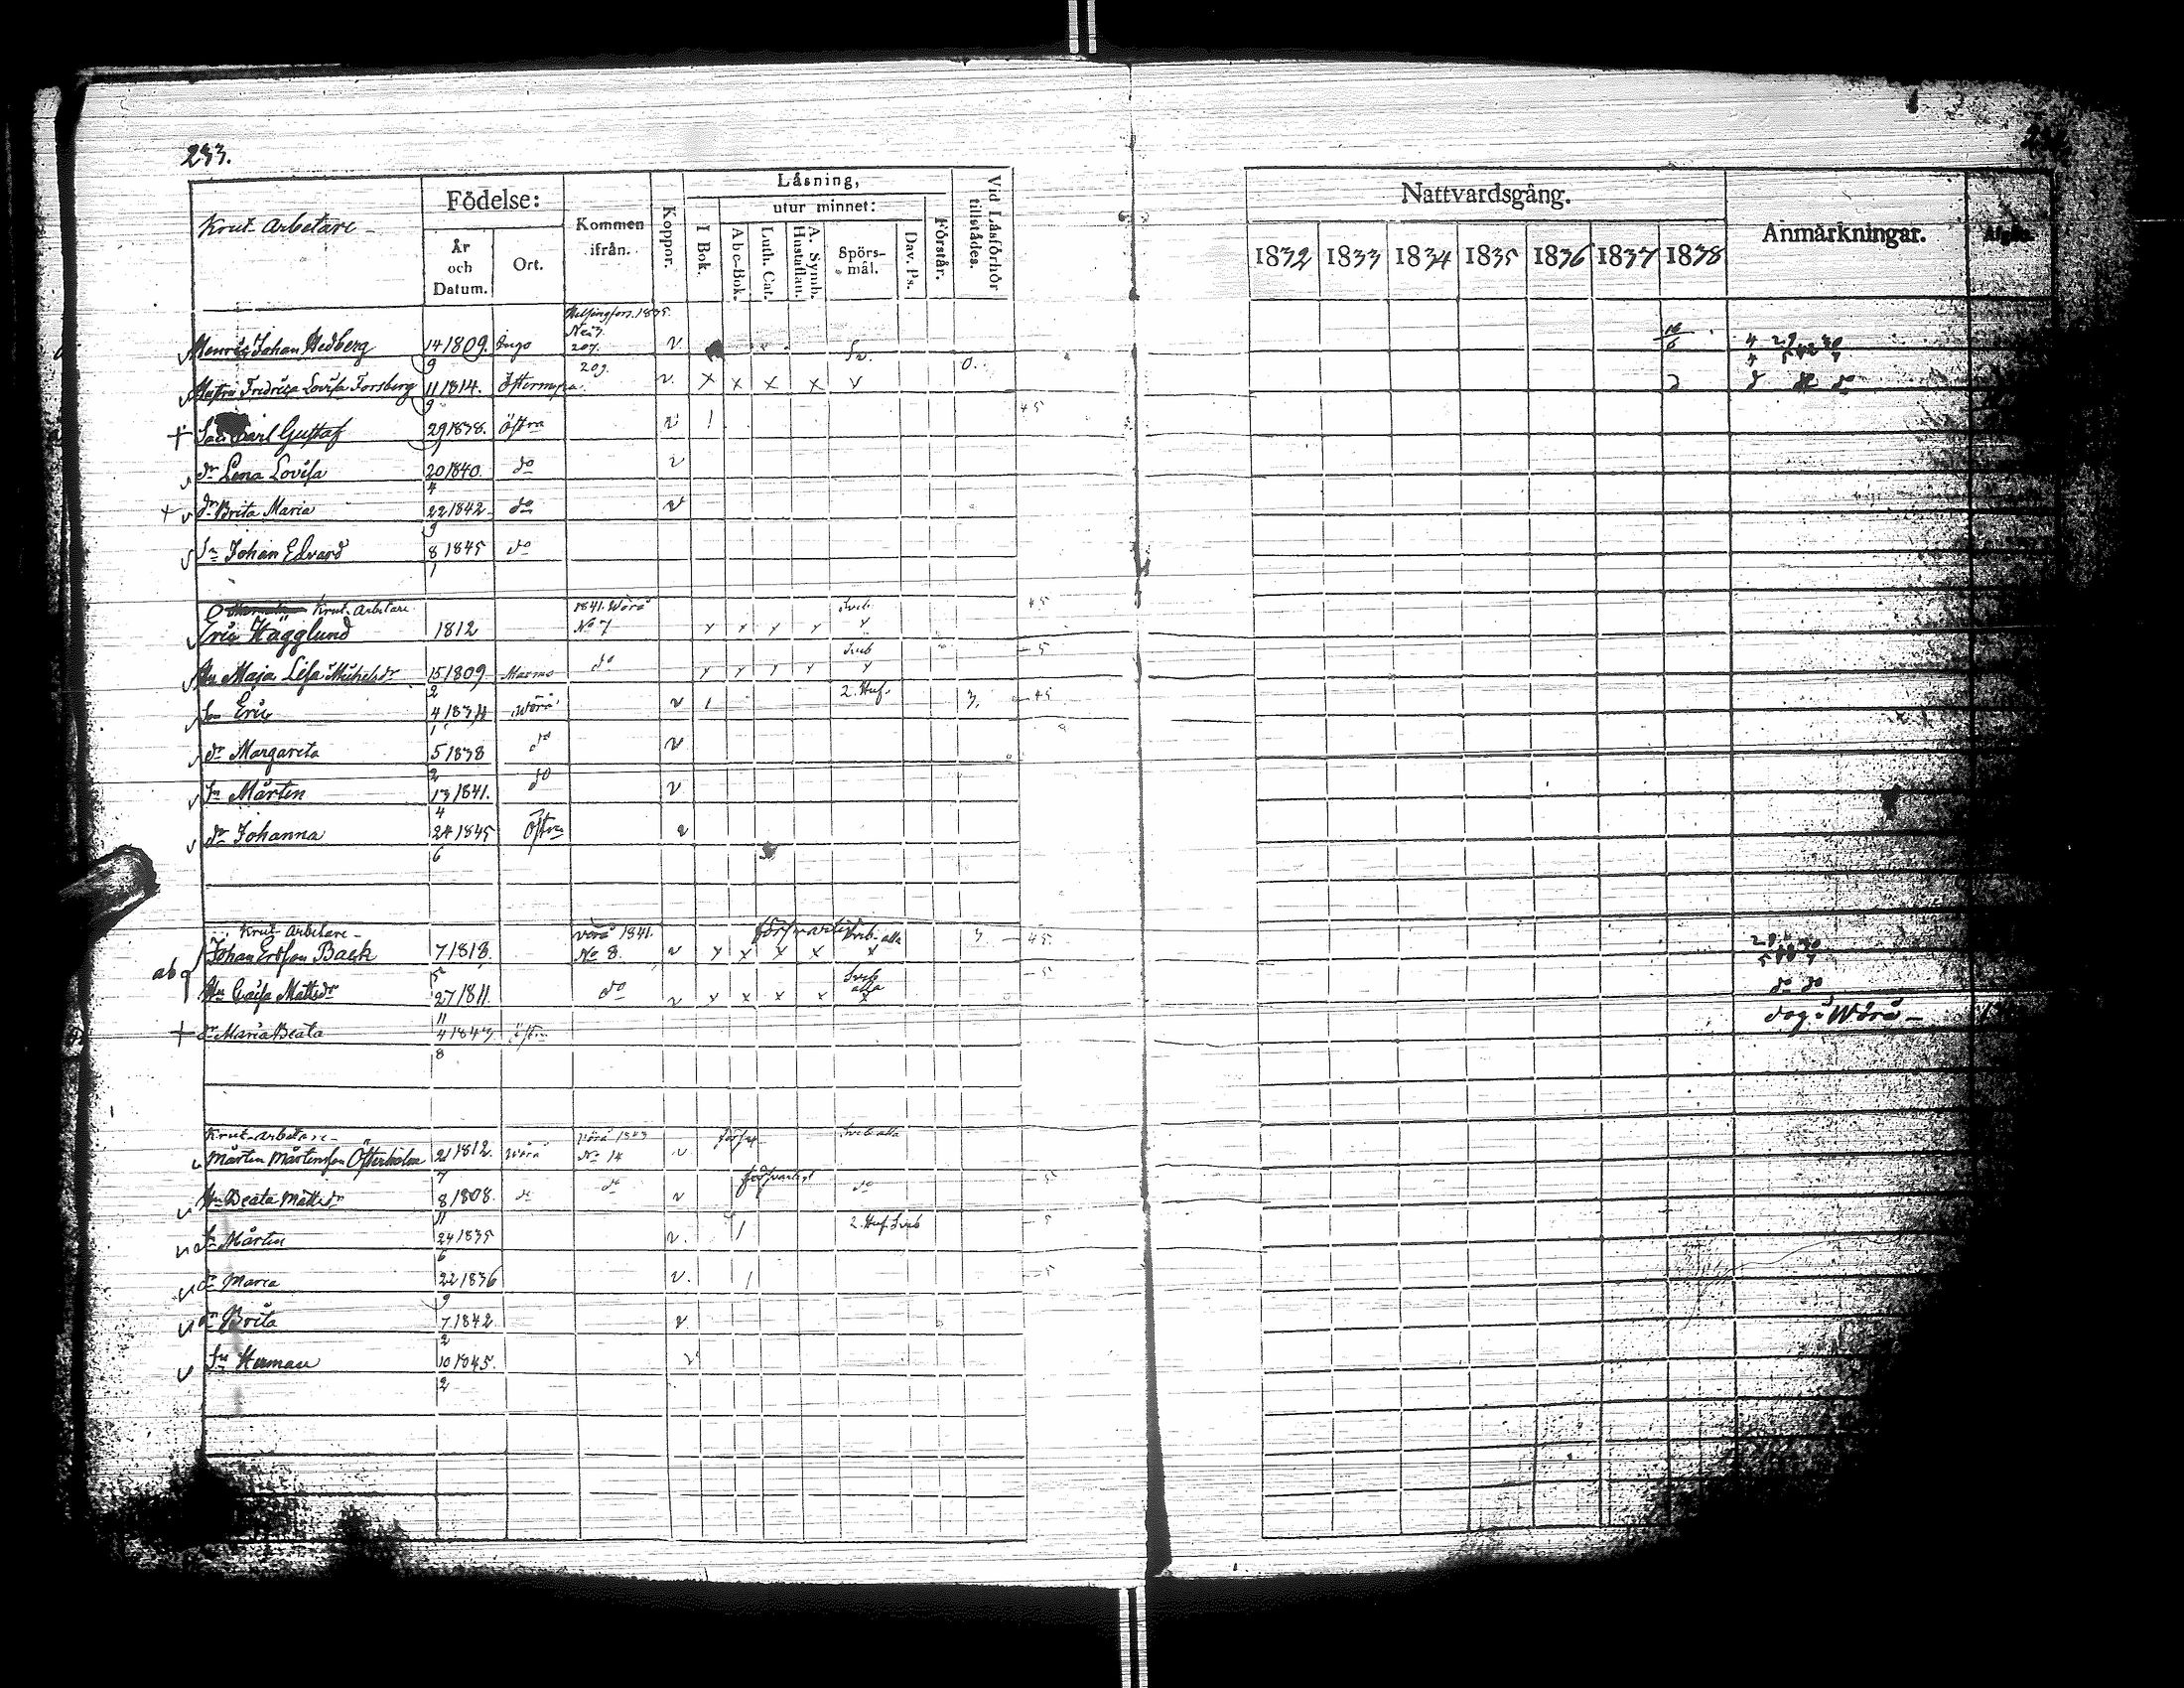 233.
Krut Arbetare
Födelse:
År och Datum.
Ort.
Kommen ifrån.
Koppor.
Läsning,
utur minnet:
I Bok.
Abc-Bok.
Luth. Cat.
A. Symb. Hustaflan.
Spörsmål.
Dav. Ps.
Förstår.
Vid Läsförhör tillstådes.
Nattvardsgång.
1832 1833 1834 1835 1836 1837 1838
Anmärkningar.
Helsingfors. 1835.
Henric Johan Hedberg 14/9 1809. Ingo 207. v Sv.
209.
Fredrica Lovisa Forsberg 11/9 1814. v. x x x x v 0.
+ Carl Gustaf 29/9 1838. Östra v 1 45
dr Lena Lovisa 20/4 1840. do v
+ v dr Brita Maria 22/9 1842 do v
Sn Johan Edvard 8/1 1845 do
Krut. Arbetare 1841. Wörå Sveb. 45
Eric Hägglund 1812 No 7 x x x x x
Hu Maja Lisa Michelsdr 15/2 1809 Maxmo do x x x x Sveb x 5
Son Eric 4/1 1834 Wörå v 1 2. Huf. 3. 45
dr Margareta 5/2 1838 do v
Sn Mårten 13/4 1841. do v
v dr Johanna 24/6 1845 Östra v
Krut-Arbetare - Vörå 1841. försvarl. Sveb. alla 45.
abg Johan Ersson Back 7/5 1818. No 8. v x x x x x
Hu Caisa Mattsdr 27/11 1811. do v x x x x Sveb alla x 5
do do
+ dr Maria Beata 4/8 1843. Östra
dog i Wörå -
Krut-Arbetare - Vörå 1843 Sveb alla
Mårten Mårtensson Österholm 21/7 1812. Wörå No 14 v
Hu Beata Mattsdr 8/11 1808. do do v försvarligt do 5
Sn Mårten 24/6 1835 v. 1 2. Huf. Sveb 5
dr Maria 22/9 1836 v. 1 5
dr Brita 7/2 1842 v
Sn Herman 10/2 1845. v